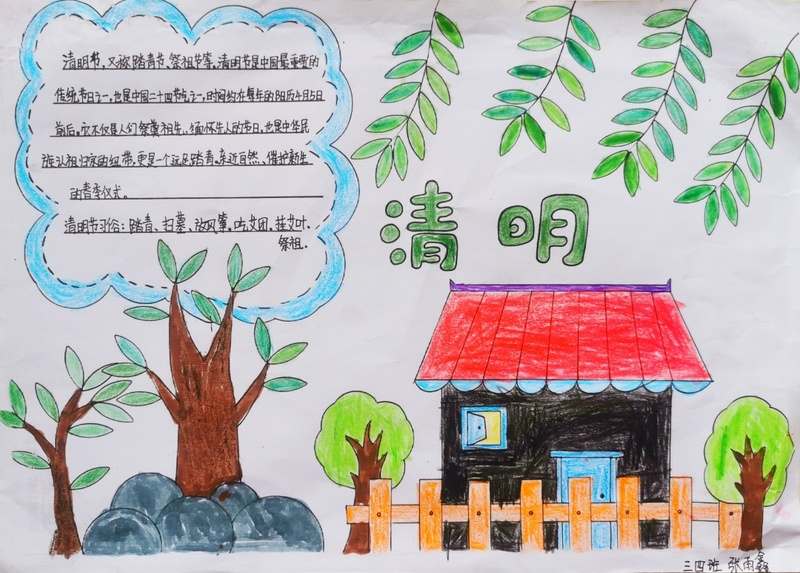 清明节，又称踏青节、祭祖节等。清明节是中国最重要的
传统节日之一，也是中国二十四节气之一，时间约在每年的阳历4月5日
前后。它不仅是人们祭奠祖先、缅怀先人的节日，也是中华民
族认祖归宗的纽带，更是一个远足踏青、亲近自然、催护新生
的春季仪式。
清明节习俗：踏青、扫墓、放风筝、吃艾团、挂艾叶、
祭祖.
清明
三四班 张雨鑫